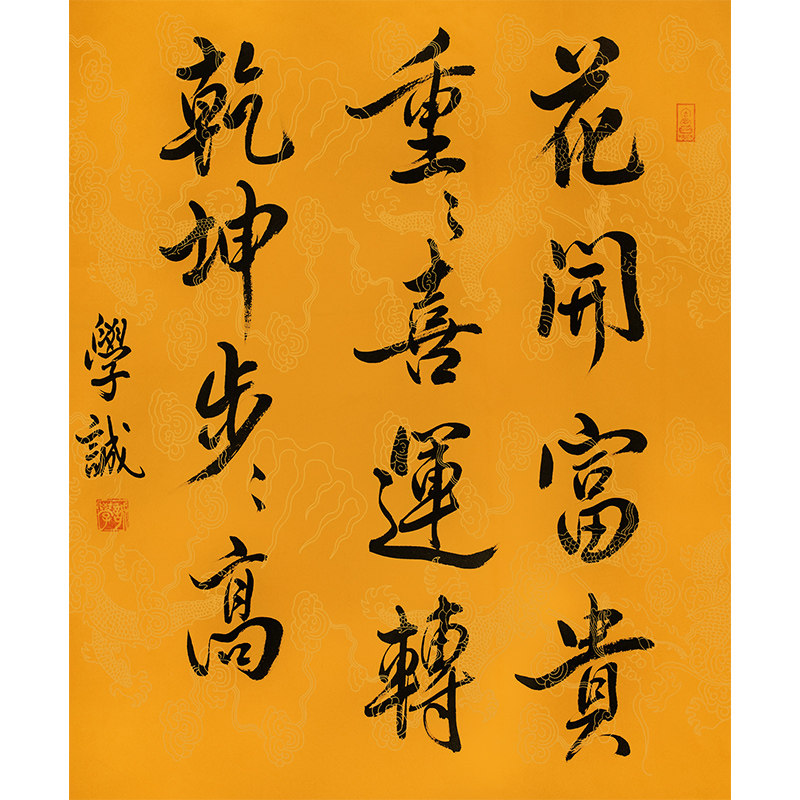 花開富貴
重々喜運轉
乾坤步々高
學誠